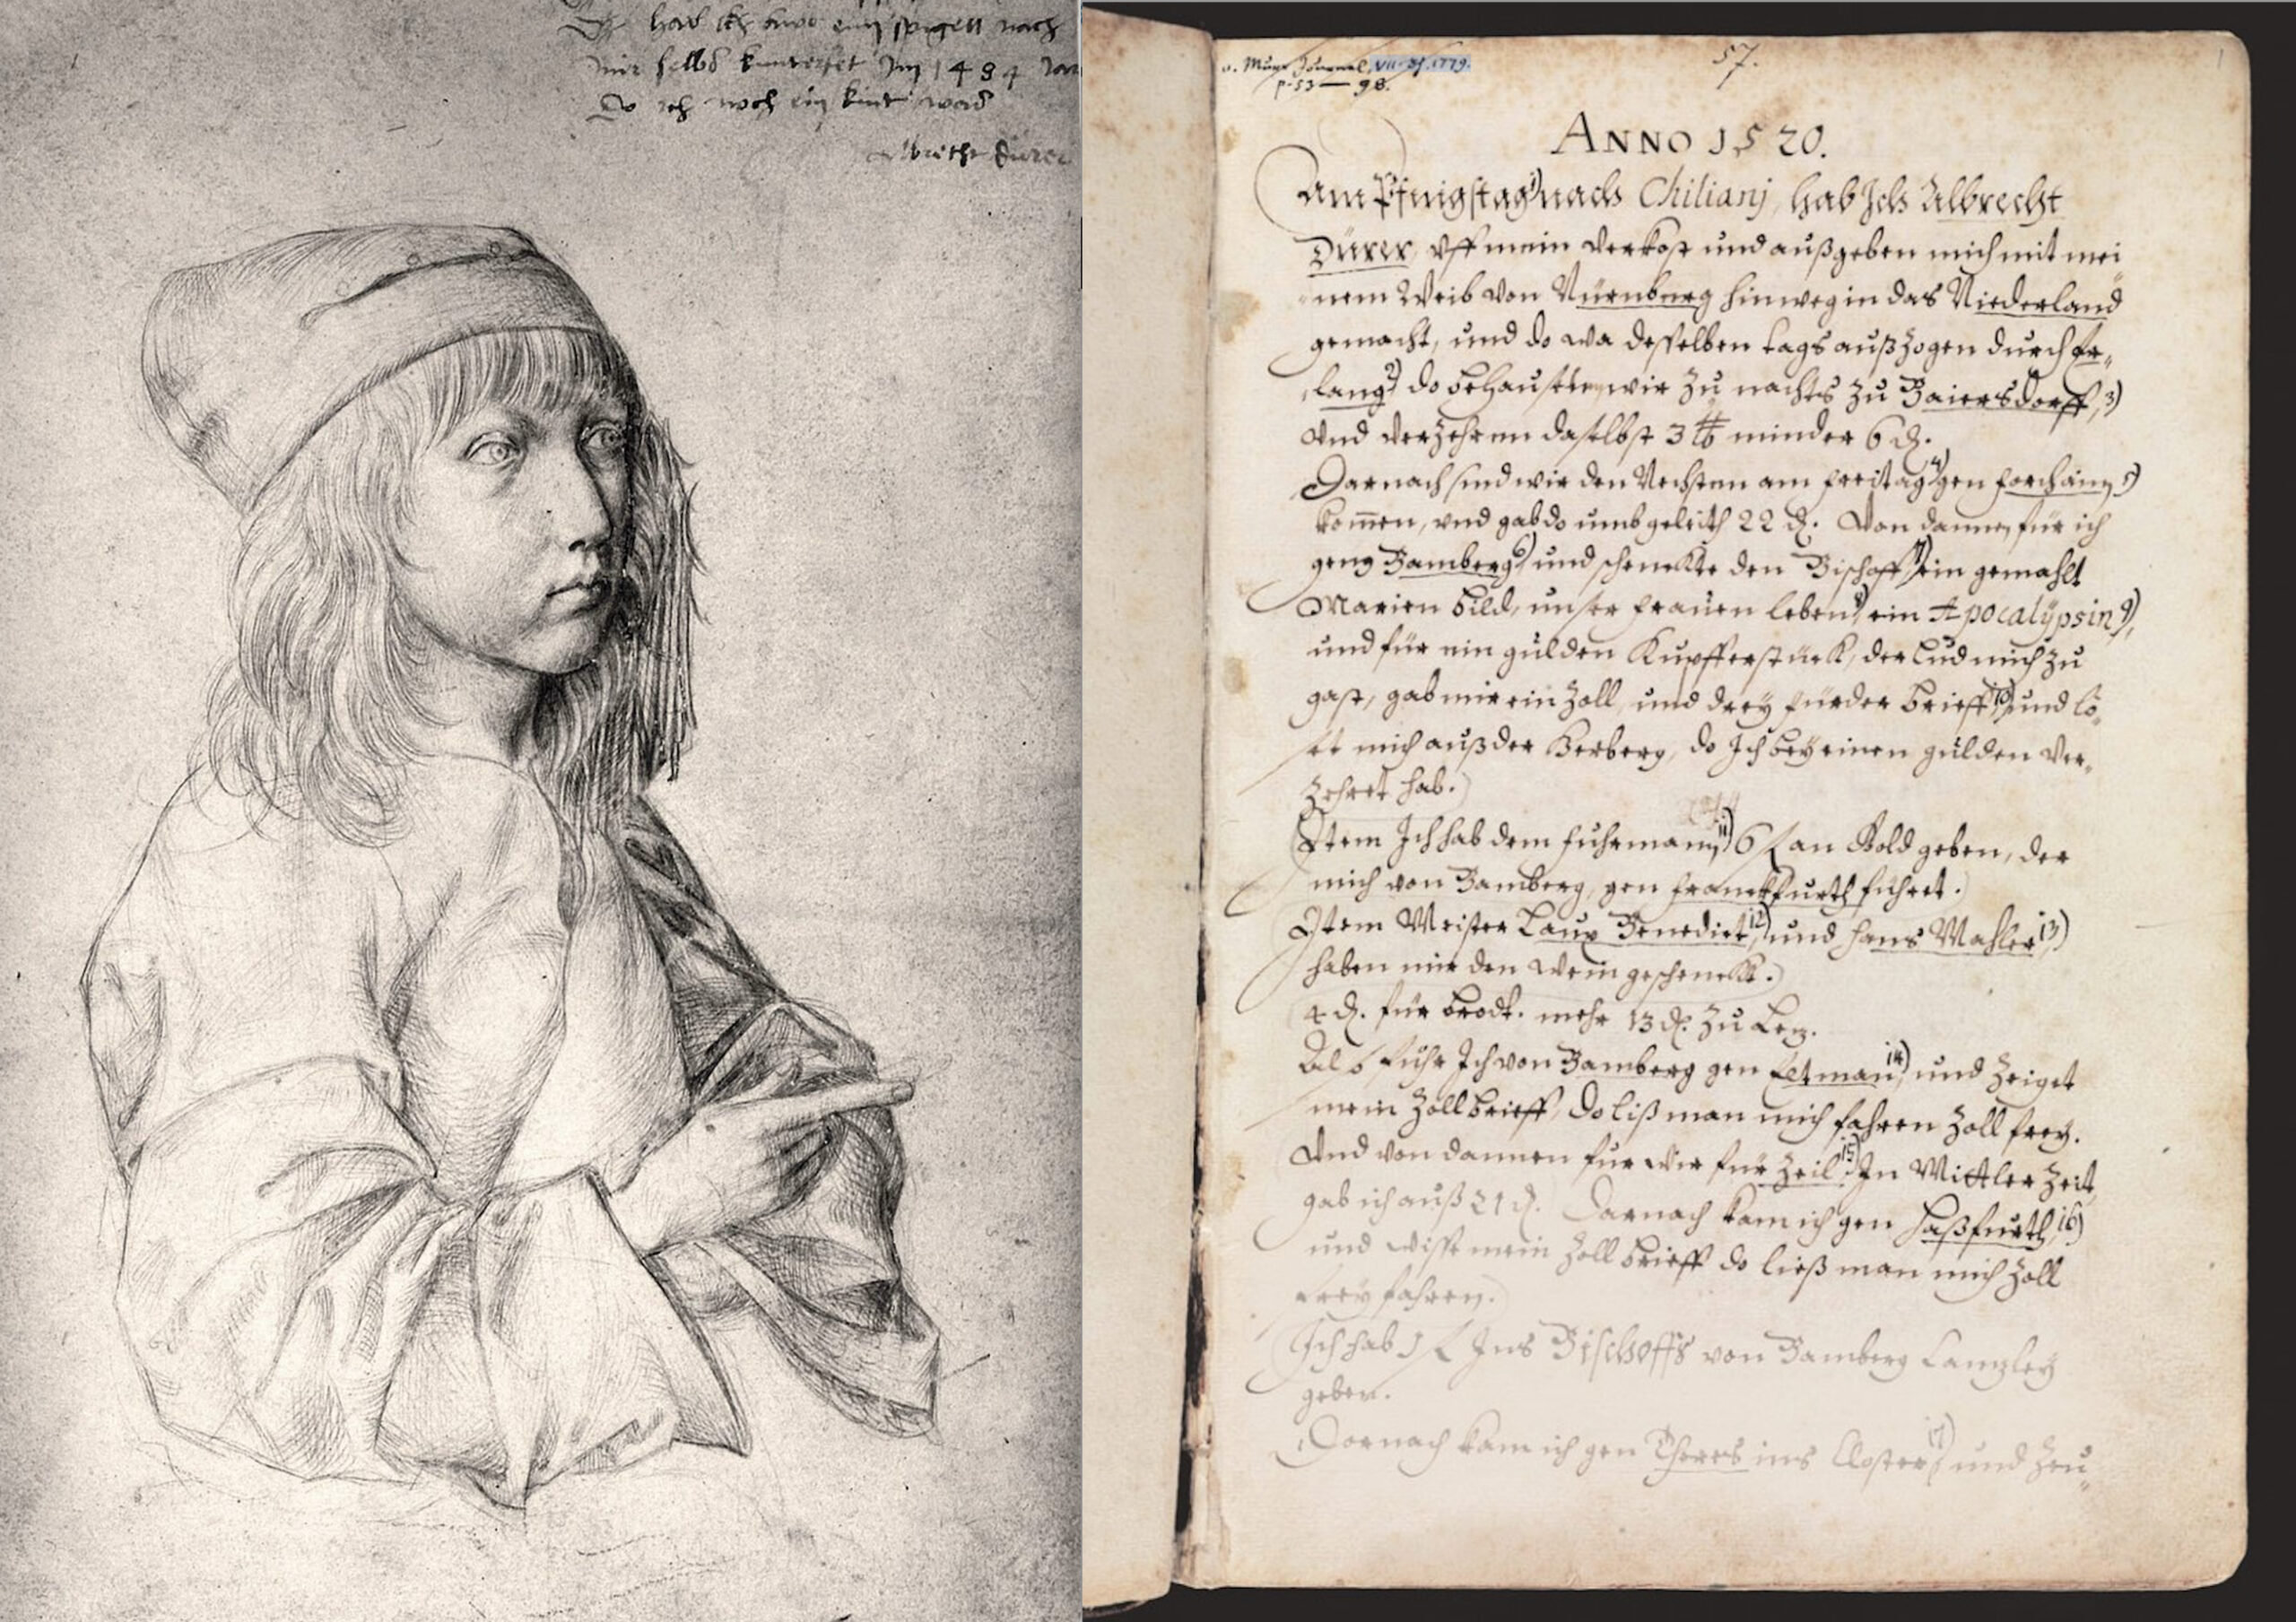 Dz hab ich aws eim spigell nach
mir selbs kunterfet Im 1484 Jar
Do ich noch ein kint was
Albrecht Dürer
v. Murr Journal, VII. Th. 1779.
p. 53 — 98.
57.
1
ANNO 1520.
Am Pfingstag 1) nach Chiliani, hab Ich Albrecht
Dürer, vff mein verkost und außgeben mich mit mei
nem Weib von Nürnberg hinweg in das Niederland
gemacht, und do wa desselben tags außzogen durch Er„
lang 2) do behausten wir zu nachts zu Baiersdorff, 3)
Vnd verzehren daselbst 3 ₶ minder 6 ₰.
Darnach sind wir den Nechsten am freitag 4) gen forchaim 5)
kom̅en, vnd gab do umb geleith 22 ₰. Von dannen für ich
geng Bamberg 6) und schenckte den Bischoff 7) ein gemahlt
Marien bild, unser frauen leben 8) ein Apocalÿpsin 9),
und für ein gulden Kupfferstück, der Lud mich zu
gast, gab mir ein Zoll und dreÿ fürder brieff 10) und lö„
st mich auß der Herberg, do Ich beÿ einen gulden ver„
Zehret hab.
Item Ich hab dem fuhrmann 11) 6 f an Gold geben, der
mich von Bamberg, gen franckfurth führet.
Item Meister Laux Benedict 12) und hans Mahler 13)
haben mir den Wein geschenckt.
4 ₰. für brodt. mehr 13 ₰. zu Lez.
Als fuhr Ich von Bamberg gen Eltman 14) und Zeiget
mein Zollbrieff, Do liß man mich fahren Zoll freÿ.
Vnd von dannen fur wir für Zeil 15) In Mittler Zeit
gab ich auß 21 ₰. Darnach kam ich gen Haßfurth 16)
und wiss mein Zoll brieff do ließ man mich Zoll
freÿ fahren.
Ich hab 1 f Ins Bischoffs von Bamberg Canzleÿ
geben.
Darnach kam ich gen Therrs ins Closter 17) und Zeu„